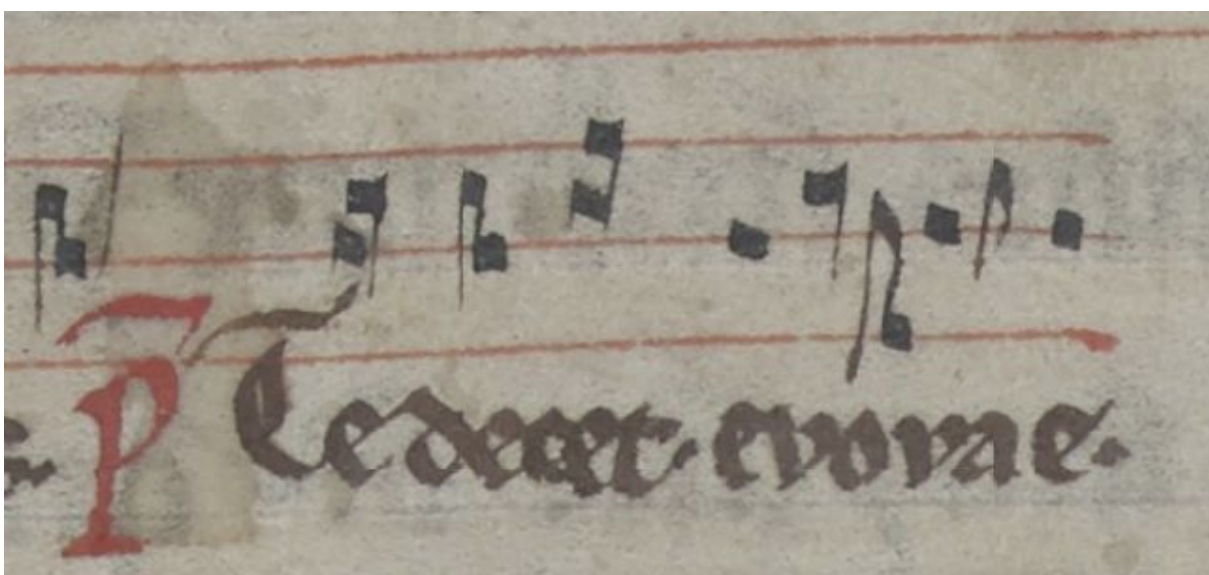 P̄ Te decet. evovae.